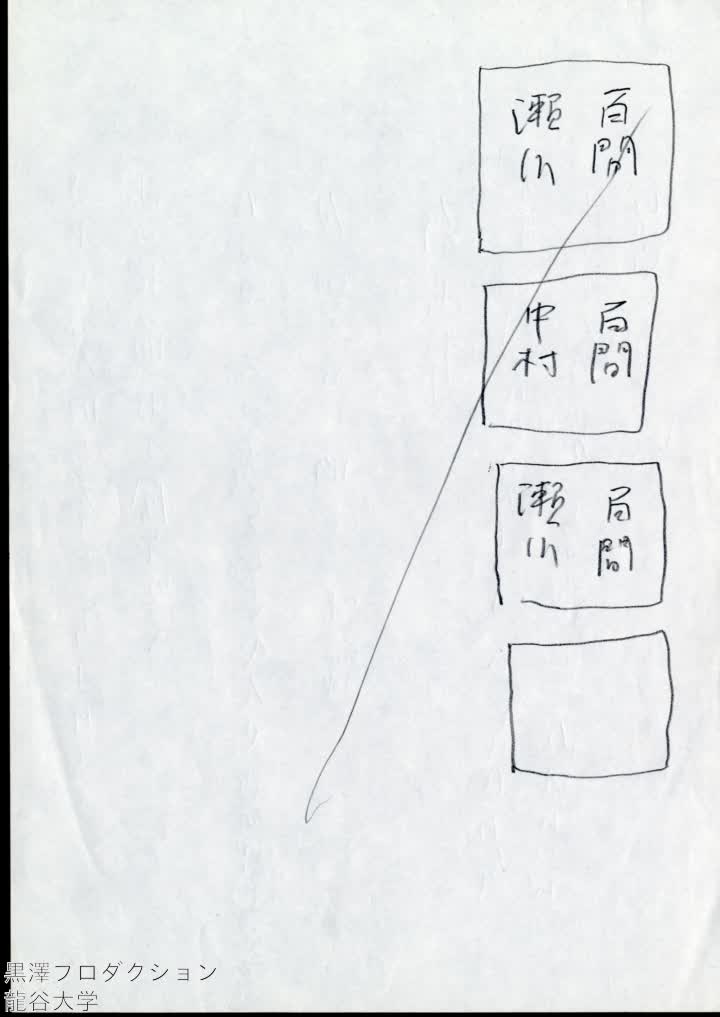 百間
瀬川
百間
中村
百間
瀬川
黒澤プロダクション
龍谷大学